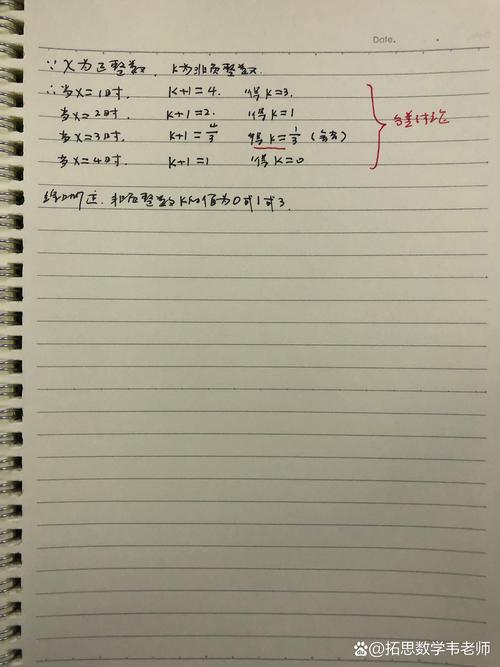 Date.
∵ X为正整数, K为非负整数.
∴当X=1时, K+1=4. 得K=3.
当X=2时. K+1=2. 得K=1
当X=3时. K+1=4/3 得K=1/3 (舍去)
当X=4时. K+1=1 得K=0
分类讨论
综上所述,非负整数K的值为0或1或3.
@拓思数学韦老师